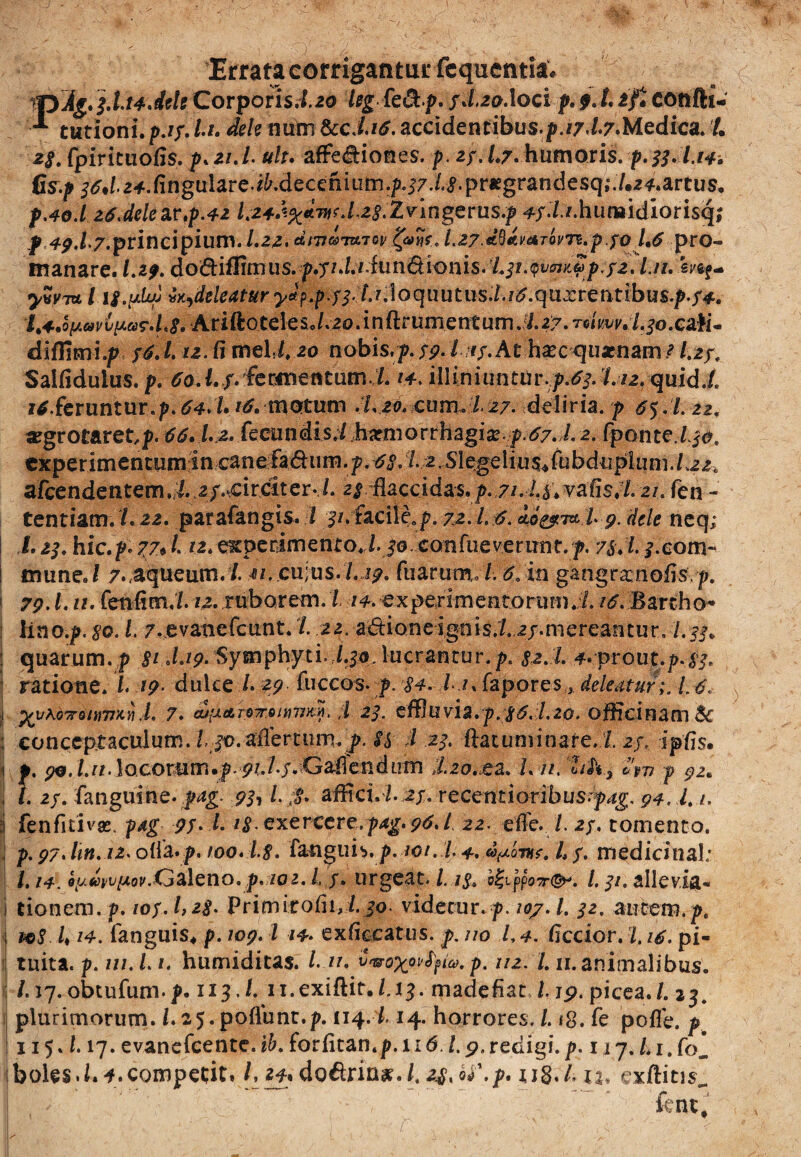 Errata corrigantur sequentia.
PAg. 3.l.14.dele Corporis.l.20 leg. sect.p. 5.l.20.loci p. 9.l. 2ſ. consti-
tutioni. p.15. l.1. dele num &c.l.16. accidentibus.p.17.l.7.Medica. l.
28. spirituosis. p. 21.l. ult. affectiones. p. 25. l.7. humoris. p.33. l.14.
sis.p 36.l. 24.singulare.ib.decennium.p.37.l.8.prægrandesq;.l.24.artus.
p.40.l 26.dele ar,p.42 l.28.Zvingerus.p 45.l.1.humidiorisq;
p 49.l.7.principium. l.22. l.27. p.50 l.6 pro-
manare. l.29. doctissimus. p.51.l.1.functionis. l.31. p.52. l.11.
l 18. deleatur p.53. l.1.loquutus.l.16.quærentibus.p.54.
l.8. Aristoteles.l.20.instrumentum.l.27. l.30.cali-
dissimi.p. 56.l. 12. si mel.l. 20 nobis.p. 59. l. 15. At hæc quænam? l.25.
Salsidulus. p. 60.l.5. fermentum. l. 14. illiniuntur.p.63. l.12. quid.l.
16.feruntur.p. 64.l. 16. motum .l.20. cum. l. 27. deliria. p 65.l. 22.
ægrotaret,p. 66. l.2. secundis.l.hæmorrhagiæ.p.67.l. 2. sponte.l.30.
experimentum in cane factum.p.68.l.2.Slegelius,subduplum.l.22.
ascendentem.l. 25.circiter.l. 28 flaccidas. p. 71.l.8.vasis.l. 21. sen-
tentiam.l.22. parasangis. l 31.facile.p. 72.l.6. l. 9. dele neq;
l. 23. hic.p.77.l. 12.experimento.l. 30.consueverunt.p. 78.l. 3.com-
mune.l 7.aqueum.l. 11. cujus.l.19. suarum. l. 6. in gangrænosis.p.
79.l. 11. sensim.l.12. ruborem. l 14. experimentorum.l.16. Bartho-
lino.p. 80. l. 7.evanescunt. l. 22. actione ignis.l.25.mereantur. l.33.
quarum.p 81 .l.19. Symphyti. l.30. lucrantur. p. 82. l. 4.prout.p.83.
ratione. l. 19. dulce l. 29 succos. p. 84. l.1. sapores, deleatur;. l. 6.
χυλοποιητικὴ .l. 7. αἱματοποιητικὴ. l 23. effluvia.p.86.l.20. officinam &
conceptaculum. l.30.assertum. p. 88 l 23. statuminare.l. 25. ipsis.
p. 90.l.11.locorum.p.91.l.5.Gassendum l.20..ea. l. 11. p 92.
l. 25. sanguine. pag. 93, l. 8. affici.l. 25. recentioribus.pag. 94. l. 1.
sensitivæ. pag 95. l. 18.exercere.pag.96.l 22. esse. l. 25. tomento.
p. 97. lin. 12. ossa.p. 100. l.8. sanguis. p. 101. l. 4. l. 5. medicinal:
l. 14. Galeno. p. 102. l. 5. urgeat. l. 18. l. 31. allevia-
tionem. p. 105. l.28. Primirosii, l. 30. videtur. p. 107. l. 32. autem. p.
108 l. 14. sanguis. p. 109. l 14. exsiccatus. p. 110 l. 4. siccior. l. 16. pi-
tuita. p. 111. l. 1. humiditas. l. 11. ὑποχονδρίω. p. 112. l. 11.animalibus.
l. 17. obtusum. p. 113. l. 11.existit. l.13. madefiat l. 19. picea. l. 23.
plurimorum. l. 25. possunt. p. 114. l. 14. horrores. l. 18. se posse. p
115. l. 17. evanescente. ib. forsitan.p. 116. l. 9. redigi. p. 117. l. 1. so
boles. l. 4.competit, l. 24. doctrinæ. l. 28. p. 118. l. 12. exstitis
sent.